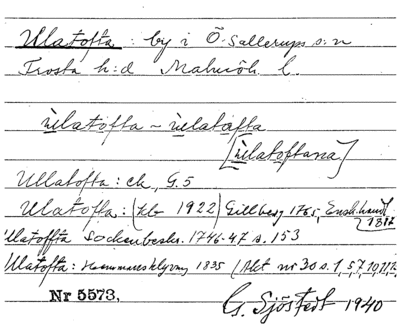 Ullatofta: by i Ö. Sallerups s:n
Frosta h:d Malmöh. l.
ùlatofta ~ ùlatåfta
[ùlatoftana]
Ullatofta: ek, G.5
Ulatofta: (kb 1922) Gillberg 1765, Ensk. handl
1812
Ulatoffta Sockenbeskr. 1746-47 s. 153
Ulatofta: Hemmansklyvn 1835 (Akt nr 30 s. 1, 5, 7, 10,
Nr 5573,
G. Sjöstedt 1940